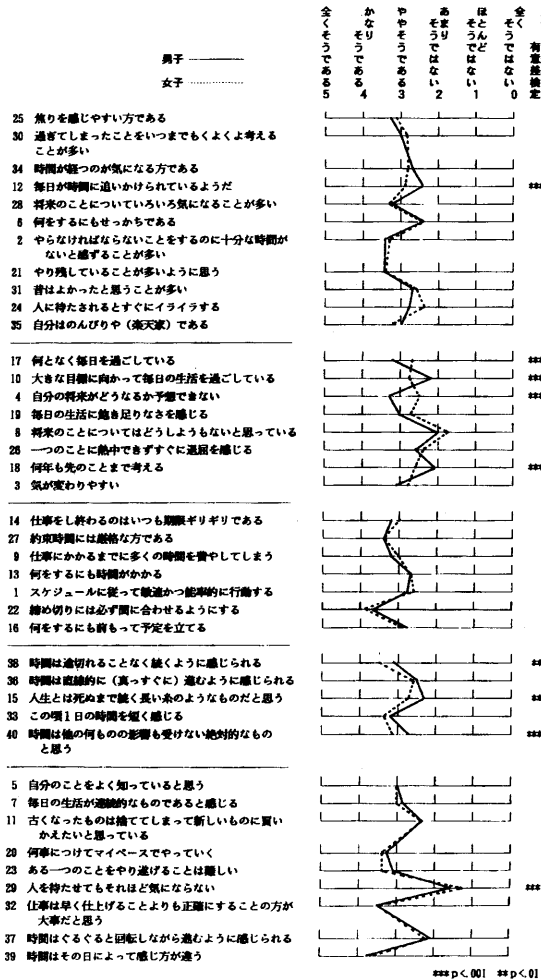 全くそうである
かなりそうである
ややそうである
あまりそうではない
ほとんどそうではない
全くそうではない
有意差検定
男子
女子
5 4 3 2 1 0
25 焦りを感じやすい方である
30 過ぎてしまったことをいつまでもくよくよ考える
ことが多い
34 時間が経つのが気になる方である
12 毎日が時間に追いかけられているようだ ***
28 将来のことについていろいろ気になることが多い
6 何をするにもせっかちである
2 やらなければならないことをするのに十分な時間が
ないと感ずることが多い
21 やり残していることが多いように思う
31 昔はよかったと思うことが多い
24 人に待たされるとすぐにイライラする
35 自分はのんびりや（楽天家）である
17 何となく毎日を過ごしている ***
10 大きな目標に向かって毎日の生活を過ごしている ***
4 自分の将来がどうなるか予想できない ***
19 毎日の生活に飽き足りなさを感じる
8 将来のことについてはどうしようもないと思っている
26 一つのことに熱中できずすぐに退屈を感じる
18 何年も先のことまで考える ***
3 気が変わりやすい
14 仕事をし終わるのはいつも期限ギリギリである
27 約束時間には厳格な方である
9 仕事にかかるまでに多くの時間を費やしてしまう
13 何をするにも時間がかかる
1 スケジュールに従って敏速かつ能率的に行動する
22 締め切りには必ず間に合わせるようにする
16 何をするにも前もって予定を立てる
38 時間は途切れることなく続くように感じられる **
36 時間は直線的に（真っすぐに）進むように感じられる
15 人生とは死ぬまで続く長い糸のようなものだと思う **
33 この頃1日の時間を短く感じる
40 時間は他の何ものの影響も受けない絶対的なもの ***
と思う
5 自分のことをよく知っていると思う
7 毎日の生活が連続的なものであると感じる
11 古くなったものは捨ててしまって新しいものに買い
かえたいと思っている
20 何事につけてマイペースでやっていく
23 ある一つのことをやり遂げることは難しい
29 人を待たせてもそれほど気にならない ***
32 仕事は早く仕上げることよりも正確にすることの方が
大事だと思う
37 時間はぐるぐると回転しながら進むように感じられる
39 時間はその日によって感じ方が違う
*** p<.001 ** p<.01